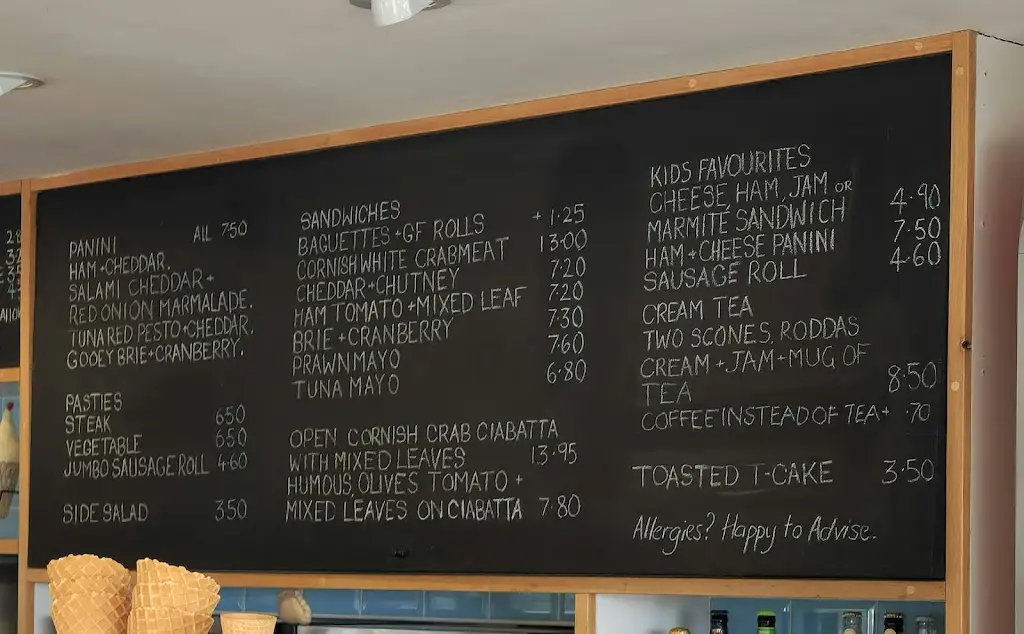 PANINI ALL 750
HAM+CHEDDAR.
SALAMI CHEDDAR+
RED ONION MARMALADE.
TUNA RED PESTO+CHEDDAR.
GOOEY BRIE+CRANBERRY.
PASTIES
STEAK 650
VEGETABLE 650
JUMBO SAUSAGE ROLL 4.60
SIDE SALAD 350
SANDWICHES
BAGUETTES+GF ROLLS +1.25
CORNISH WHITE CRABMEAT 13.00
CHEDDAR+CHUTNEY 7.20
HAM TOMATO+MIXED LEAF 7.20
BRIE+CRANBERRY 7.30
PRAWN MAYO 7.60
TUNA MAYO 6.80
OPEN CORNISH CRAB CIABATTA
WITH MIXED LEAVES 13.95
HUMOUS, OLIVES TOMATO+
MIXED LEAVES ON CIABATTA 7.80
KIDS FAVOURITES
CHEESE, HAM, JAM OR
MARMITE SANDWICH 4.90
HAM+CHEESE PANINI 7.50
SAUSAGE ROLL 4.60
CREAM TEA
TWO SCONES, RODDAS
CREAM+JAM+MUG OF
TEA 8.50
COFFEE INSTEAD OF TEA+ .70
TOASTED T-CAKE 3.50
Allergies? Happy to Advise.